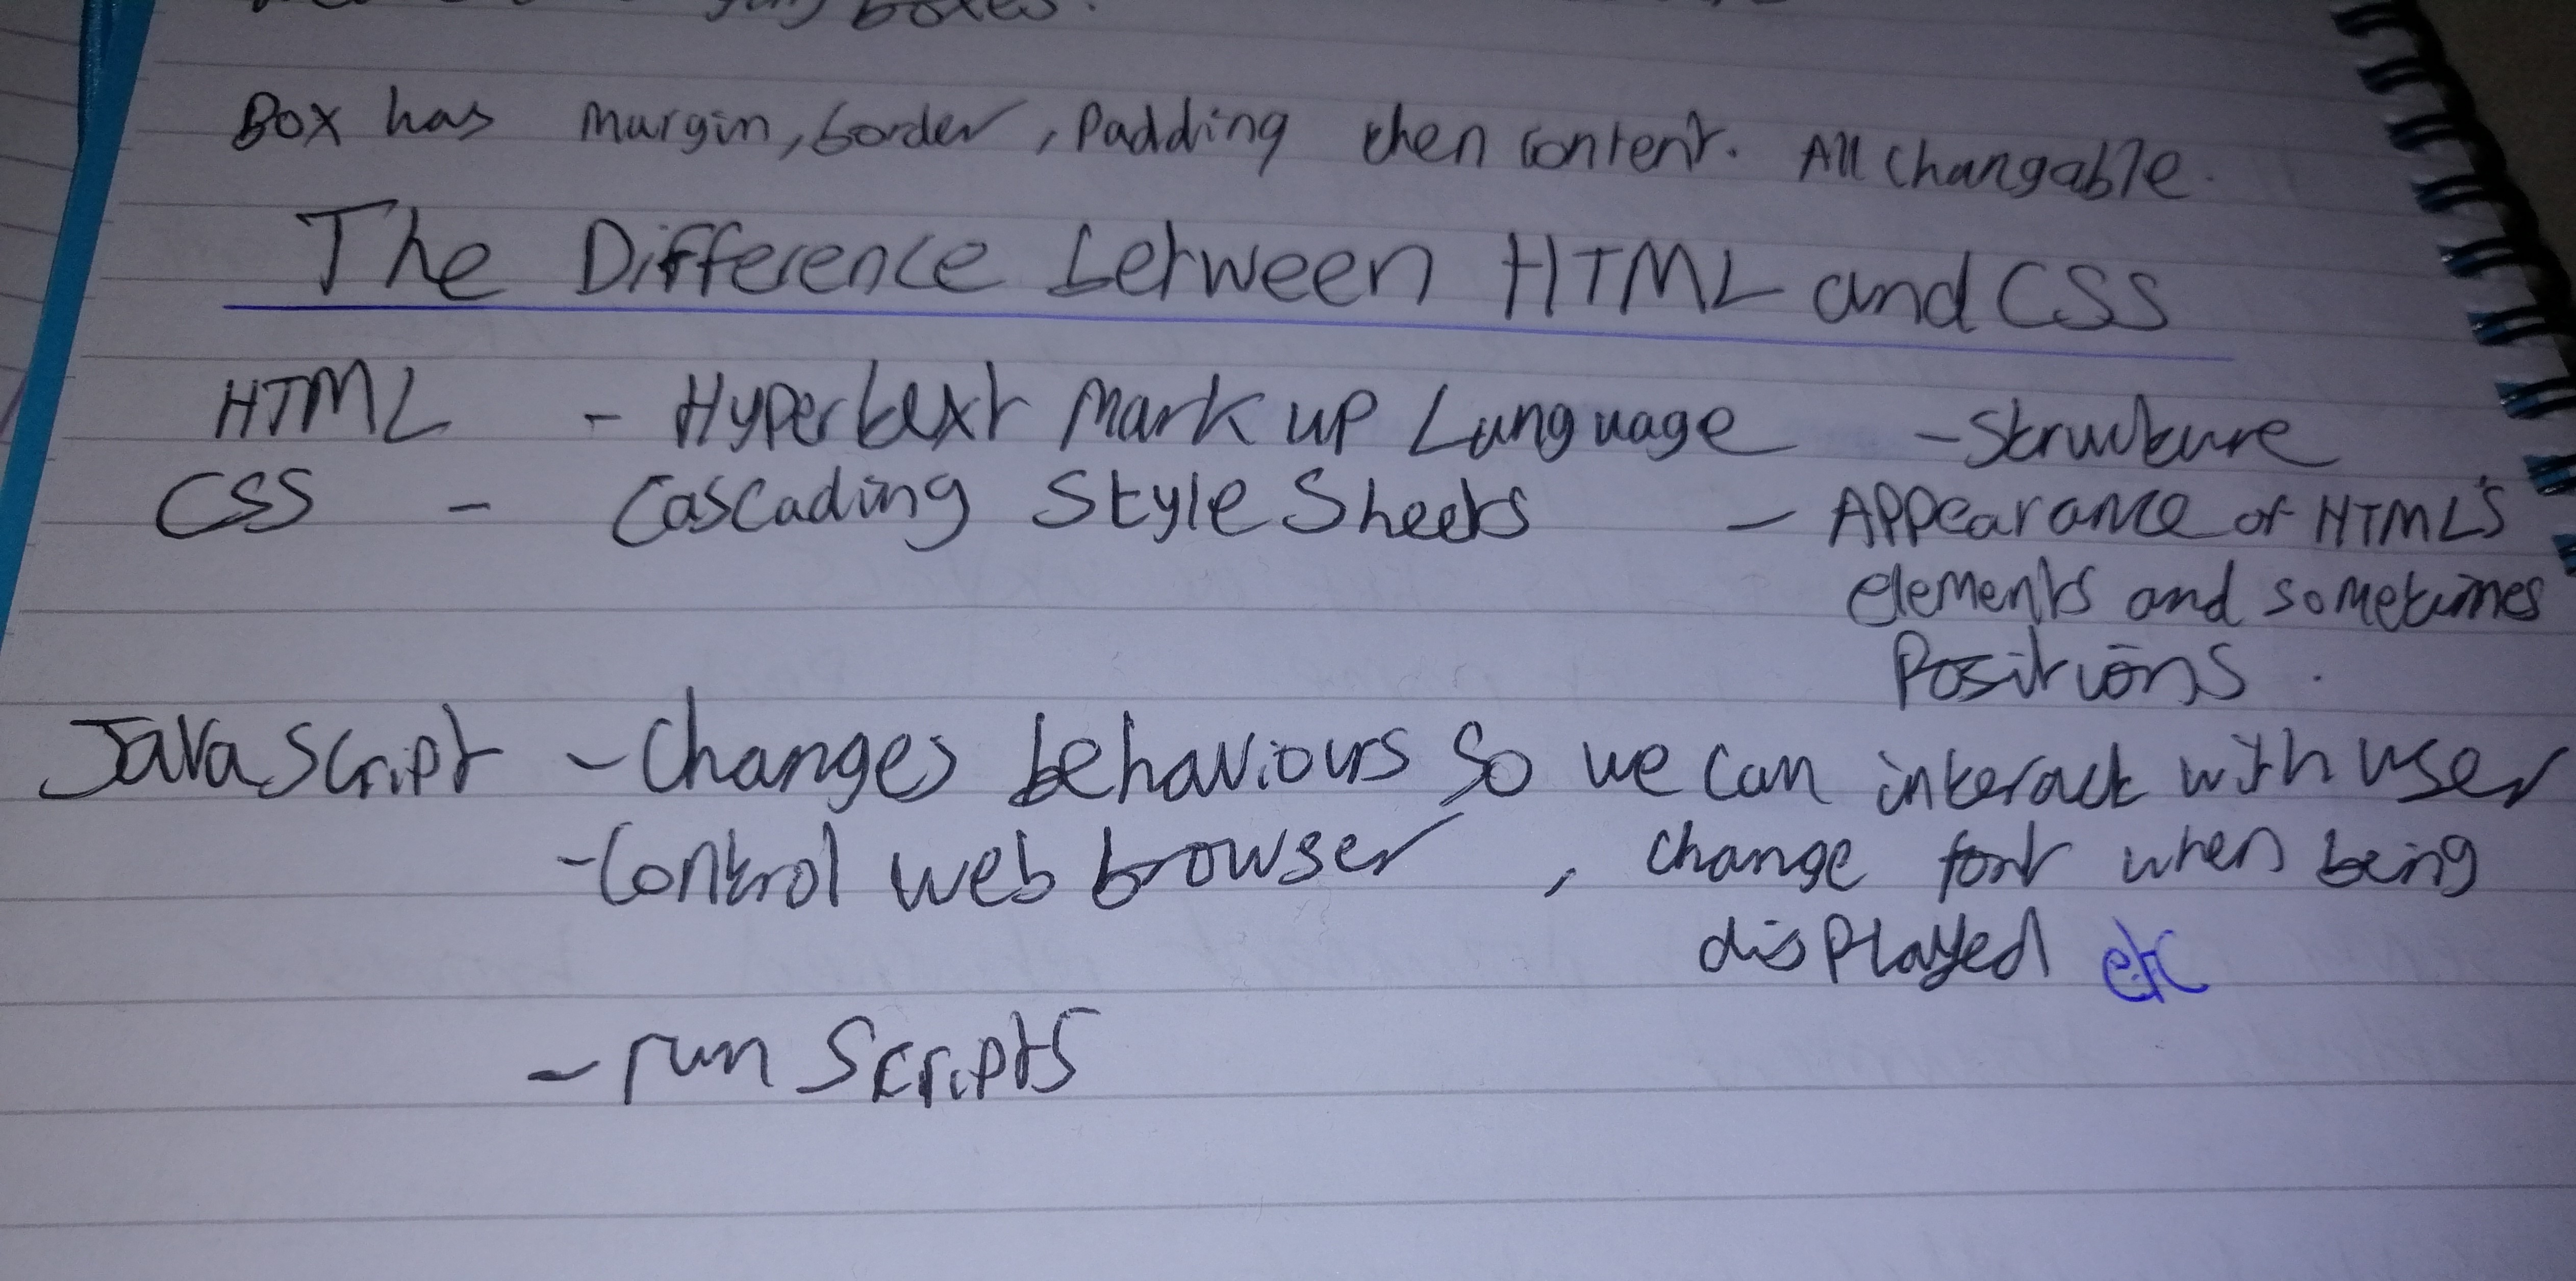 boxes.
Box has margin, border, Padding then content. All changable.
The Difference between HTML and CSS
HTML - Hypertext Mark up Language - Structure
CSS - Cascading Style Sheets - Appearance of HTML's
elements and sometimes
Positions.
JavaScript - Changes behaviours so we can interact with user
- Control web browser, change font when being
displayed etc
- run Scripts